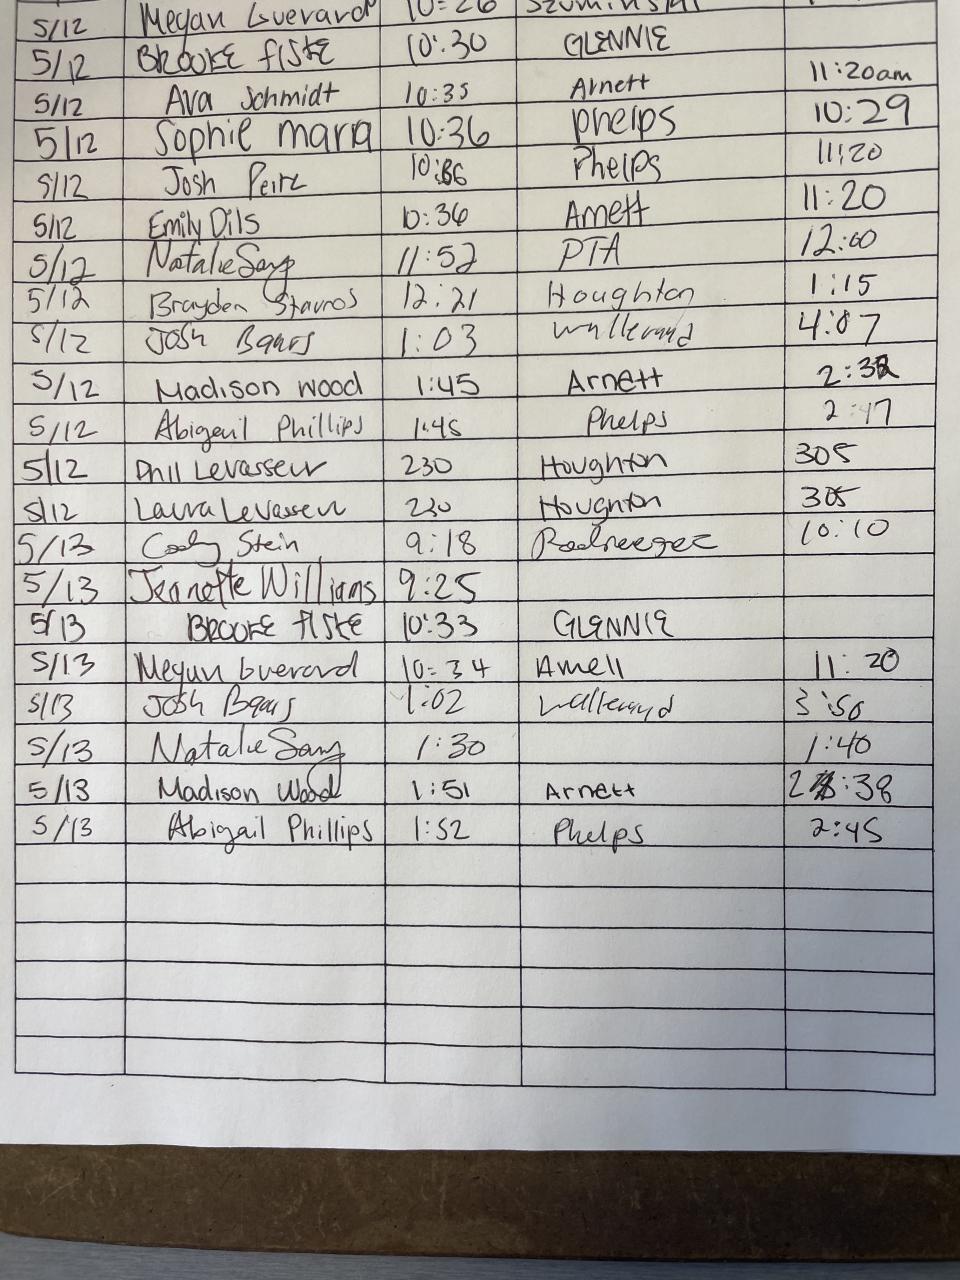 5/12 Megan Guerard 10:26
5/12 BROOKE FISKE 10:30 GLENNIE
5/12 Ava Schmidt 10:35 Arnett 11:20am
5/12 Sophie marra 10:36 phelps 10:29
5/12 Josh 10:36 Phelps 11:20
5/12 Emily Dils 10:36 Arnett 11:20
5/12 Natalie Sang 11:52 PTA 12:00
5/12 Brayden Stavros 12:21 Houghton 1:15
5/12 Josh 1:03 4:07
5/12 Madison Wood 1:45 Arnett
5/12 Abigail Phillips 1:45 Phelps 2:47
5/12 Phil Levasseur 230 Houghton 305
5/12 Laura Levasseur 230 Houghton 305
5/13 Stein 9:18 10:10
5/13 Jeanette Williams 9:25
5/13 BROOKE FISKE 10:33 GLENNIE
5/13 Megan Guerard 10:34 Arnett 11:20
5/13 Josh 1:02 3:50
5/13 Natalie Sang 1:30 1:40
5/13 Madison Wood 1:51 Arnett 2:38
5/13 Abigail Phillips 1:52 Phelps 2:45